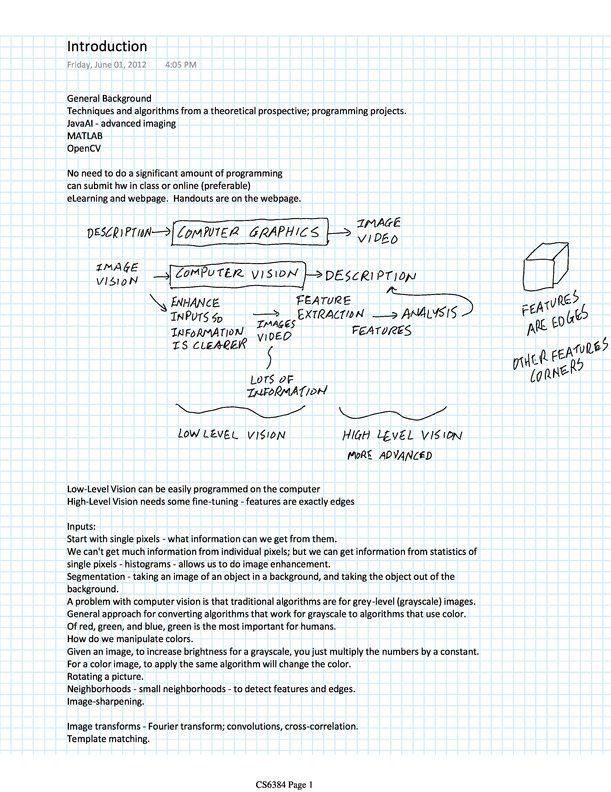 Introduction
Friday, June 01, 2012 4:05 PM
General Background
Techniques and algorithms from a theoretical prospective; programming projects.
JavaAI - advanced imaging
MATLAB
OpenCV
No need to do a significant amount of programming
can submit hw in class or online (preferable)
eLearning and webpage. Handouts are on the webpage.
DESCRIPTION COMPUTER GRAPHICS IMAGE
VIDEO
IMAGE
VISION
COMPUTER VISION DESCRIPTION
ENHANCE
INPUTS SO
INFORMATION
IS CLEARER
IMAGES
VIDEO
FEATURE
EXTRACTION
FEATURES
ANALYSIS
LOTS OF
INFORMATION
FEATURES
ARE EDGES
OTHER FEATURES
CORNERS
LOW LEVEL VISION
HIGH LEVEL VISION
MORE ADVANCED
Low-Level Vision can be easily programmed on the computer
High-Level Vision needs some fine-tuning - features are exactly edges
Inputs:
Start with single pixels - what information can we get from them.
We can't get much information from individual pixels; but we can get information from statistics of
single pixels - histograms - allows us to do image enhancement.
Segmentation - taking an image of an object in a background, and taking the object out of the
background.
A problem with computer vision is that traditional algorithms are for grey-level (grayscale) images.
General approach for converting algorithms that work for grayscale to algorithms that use color.
Of red, green, and blue, green is the most important for humans.
How do we manipulate colors.
Given an image, to increase brightness for a grayscale, you just multiply the numbers by a constant.
For a color image, to apply the same algorithm will change the color.
Rotating a picture.
Neighborhoods - small neighborhoods - to detect features and edges.
Image-sharpening.
Image transforms - Fourier transform; convolutions, cross-correlation.
Template matching.
CS6384 Page 1